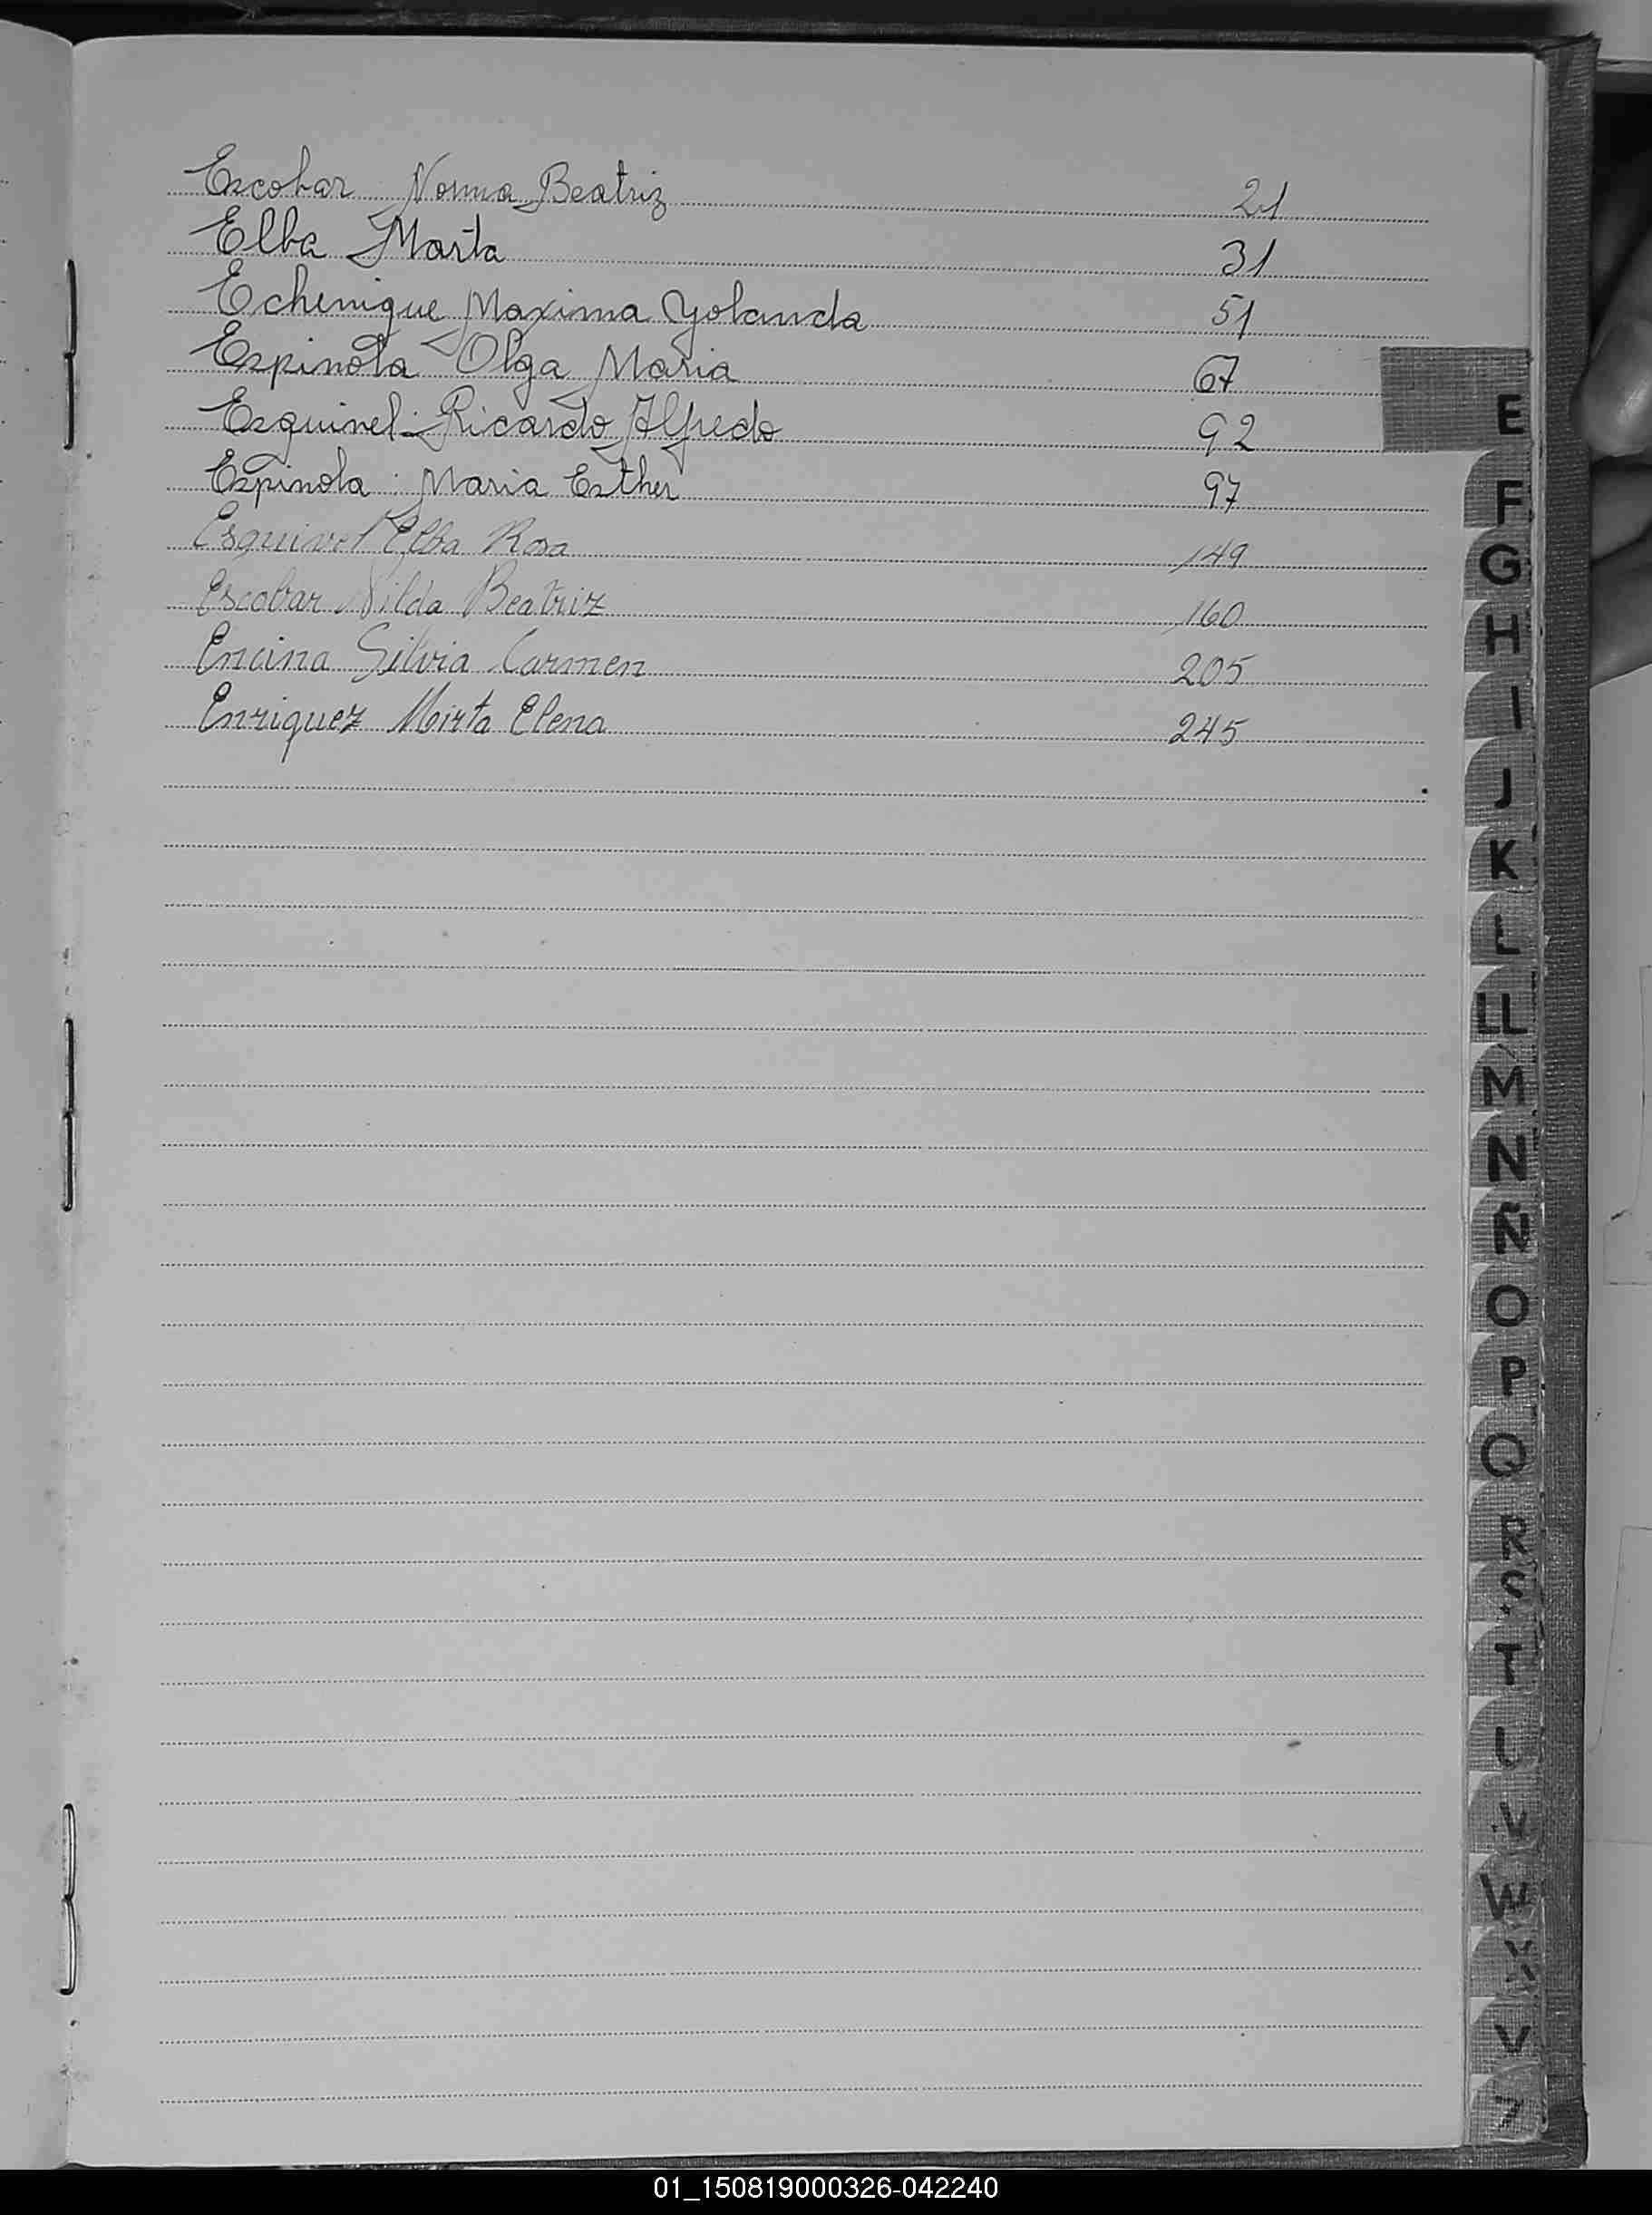 Escobar Norma Beatriz 21
Elba Marta 31
Echenique Maxima Yolanda 51
Espinola Olga Maria 67
Esquivel Ricardo Alfredo 92
Espinola Maria Esther 97
Esquivel Elba Rosa 149
Escobar Nilda Beatriz 160
Encina Silvia Carmen 205
Enriquez Mirta Elena 245
E
F
G
H
I
J
K
L
LL
M
N
Ñ
O
P
Q
R
S
T
V
W
01_150819000326-042240